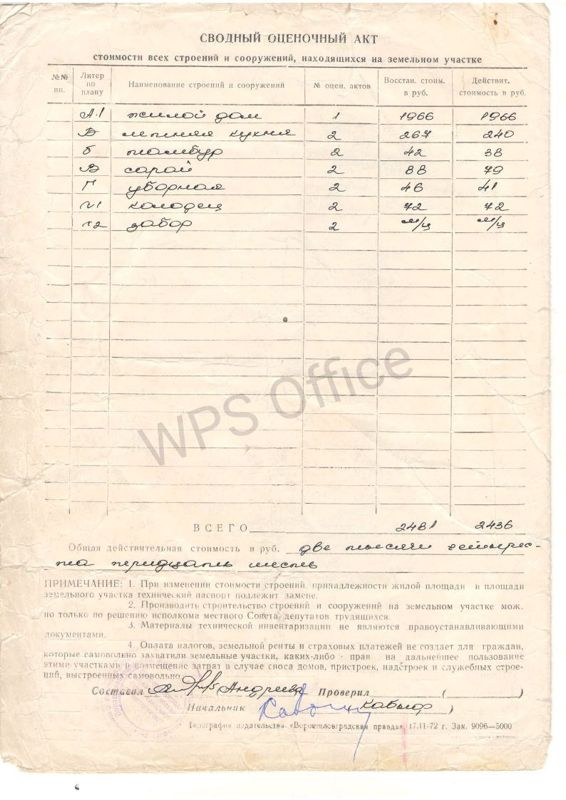 СВОДНЫЙ ОЦЕНОЧНЫЙ АКТ
стоимости всех строений и сооружений, находящихся на земельном участке
№№ пп. Литер по плану Наименование строений и сооружений № оцен. актов Восстан. стоим. в руб. Действит. стоимость в руб.
А1 жилой дом 1 1966 1966
Б летняя кухня 2 267 240
б тамбур 2 42 38
В сарай 2 88 79
Г уборная 2 46 41
№1 колодец 2 72 72
№2 забор 2 м/ц м/ц
ВСЕГО 2481 2436
Общая действительная стоимость в руб. две тысячи четырес-
та тридцать шесть
ПРИМЕЧАНИЕ: 1. При изменении стоимости строений, принадлежности жилой площади и площади
земельного участка технический паспорт подлежит замене.
2. Производить строительство строений и сооружений на земельном участке мож.
но только по решению исполкома местного Совета, депутатов трудящихся.
3. Материалы технической инвентаризации не являются правоустанавливающими
документами.
4. Оплата налогов, земельной ренты и страховых платежей не создает для граждан,
которые самовольно захватили земельные участки, каких-либо прав на дальнейшее пользование
этими участками и возмещение затрат в случае сноса домов, пристроек, надстроек и служебных строе-
ний, выстроенных самовольно.
Составил Андреева Проверил ( )
Начальник
Типография издательства «Ворошиловградская правда» 17.II-72 г. Зак. 9096—5000
WPS Office